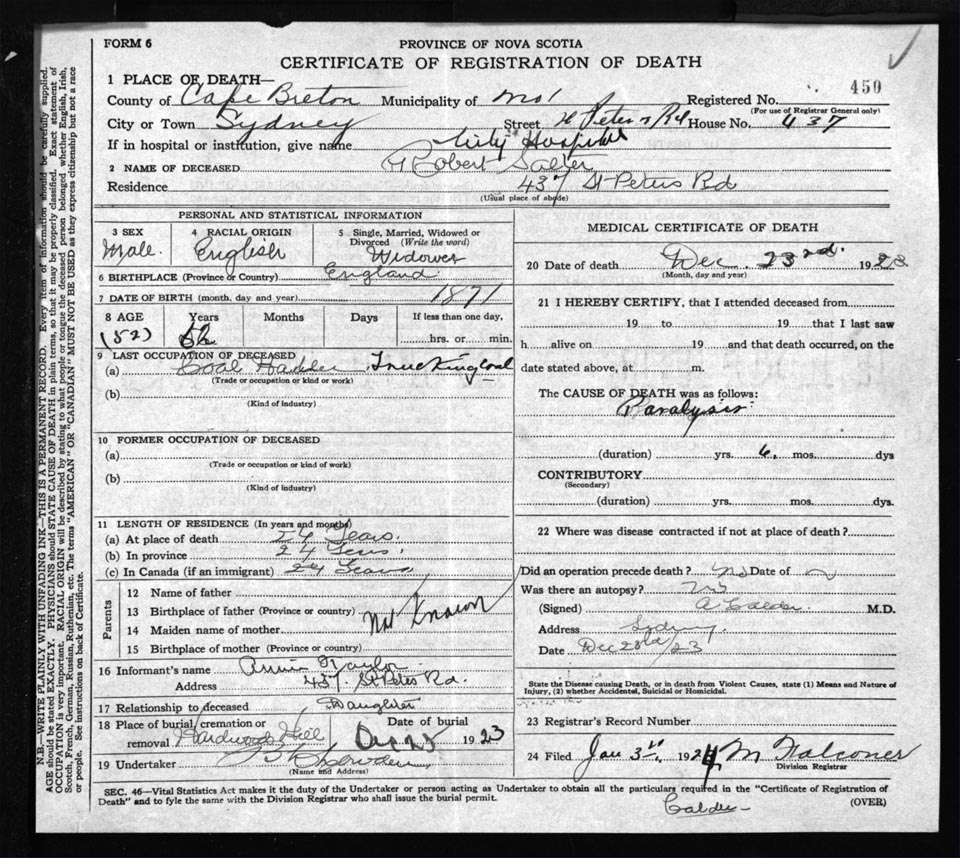 FORM 6
PROVINCE OF NOVA SCOTIA
CERTIFICATE OF REGISTRATION OF DEATH
450
1 PLACE OF DEATH—
County of Cape Breton Municipality of Registered No.
(For use of Registrar General only)
City or Town Sydney Street St Peters Rd House No. 437
If in hospital or institution, give name City Hospital
2 NAME OF DECEASED Robert Salter
Residence 437 St Peters Rd
(Usual place of abode)
PERSONAL AND STATISTICAL INFORMATION
3 SEX Male.
4 RACIAL ORIGIN English
5 Single, Married, Widowed or Divorced (Write the word) Widower
6 BIRTHPLACE (Province or Country) England
7 DATE OF BIRTH (month, day and year) 1871
8 AGE Years Months Days If less than one day,
(52) 52 hrs. or min.
9 LAST OCCUPATION OF DECEASED
(a) Coal Trucking Coal
(Trade or occupation or kind of work)
(b)
(Kind of industry)
10 FORMER OCCUPATION OF DECEASED
(a)
(Trade or occupation or kind of work)
(b)
(Kind of industry)
11 LENGTH OF RESIDENCE (In years and months)
(a) At place of death 24 Years.
(b) In province 24 Years.
(c) In Canada (if an immigrant) 24 Years
Parents
12 Name of father
13 Birthplace of father (Province or country) Not Known
14 Maiden name of mother
15 Birthplace of mother (Province or country)
16 Informant's name Annie Taylor
Address 437 St Peters Rd.
17 Relationship to deceased Daughter
18 Place of burial, cremation or removal Hardwood Hill Date of burial Dec 25 1923
19 Undertaker
(Name and Address)
MEDICAL CERTIFICATE OF DEATH
20 Date of death Dec. 23rd. 1923
(Month, day and year)
21 I HEREBY CERTIFY, that I attended deceased from
19 to 19 that I last saw
h alive on 19 and that death occurred, on the
date stated above, at m.
The CAUSE OF DEATH was as follows:
Paralysis
(duration) yrs. 6. mos. dys
CONTRIBUTORY
(Secondary)
(duration) yrs. mos. dys.
22 Where was disease contracted if not at place of death?
Did an operation precede death? No Date of
Was there an autopsy? No
(Signed) A Calder. M.D.
Address Sydney.
Date Dec 23rd/23
State the Disease causing Death, or in death from Violent Causes, state (1) Means and Nature of
Injury, (2) whether Accidental, Suicidal or Homicidal.
23 Registrar's Record Number
24 Filed Jan 3rd, 1924 M Falconer
Division Registrar
SEC. 46—Vital Statistics Act makes it the duty of the Undertaker or person acting as Undertaker to obtain all the particulars required in the "Certificate of Registration of
Death" and to fyle the same with the Division Registrar who shall issue the burial permit.
Calder
(OVER)
N.B.—WRITE PLAINLY WITH UNFADING INK—THIS IS A PERMANENT RECORD. Every item of information should be carefully supplied.
AGE should be stated EXACTLY. PHYSICIANS should STATE CAUSE OF DEATH in plain terms, so that it may be properly classified. Exact statement of
OCCUPATION is very important. RACIAL ORIGIN will be described by stating to what people or tongue the deceased person belonged, whether English, Irish,
Scotch, French, German, Russian, Ruthenian, etc. The terms "AMERICAN" OR "CANADIAN" MUST NOT BE USED as they express citizenship but not a race
or people. See instructions on back of Certificate.